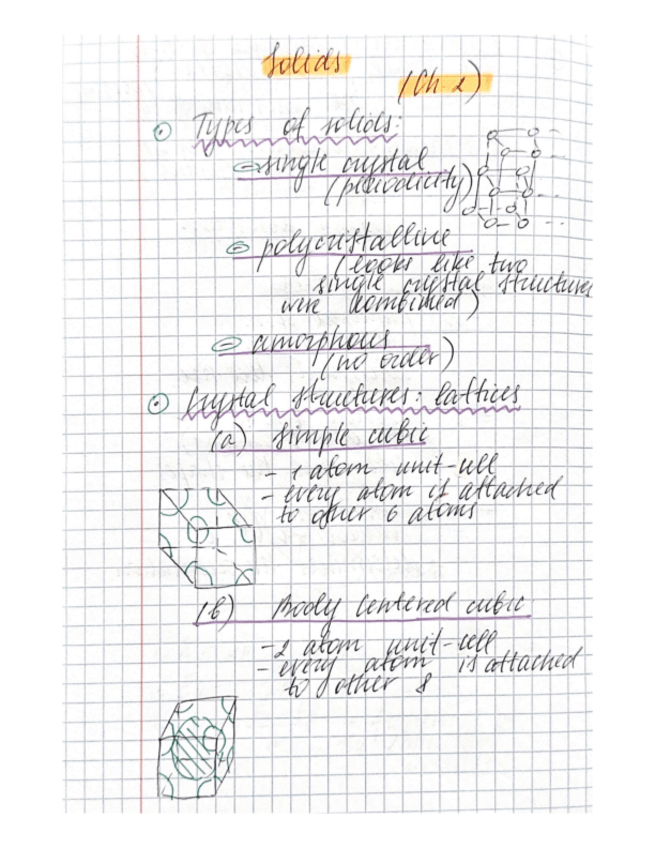 Solids
(Ch. 2)
Types of solids:
single crystal
(periodicity)
polycristalline
(looks like two
single crystal structures
were combined)
amorphous
(no order)
Crystal structures: lattices
(a) Simple cubic
- 1 atom unit-cell
- every atom is attached
to other 6 atoms
(b) Body Centered cubic
- 2 atom unit-cell
- every atom is attached
to other 8